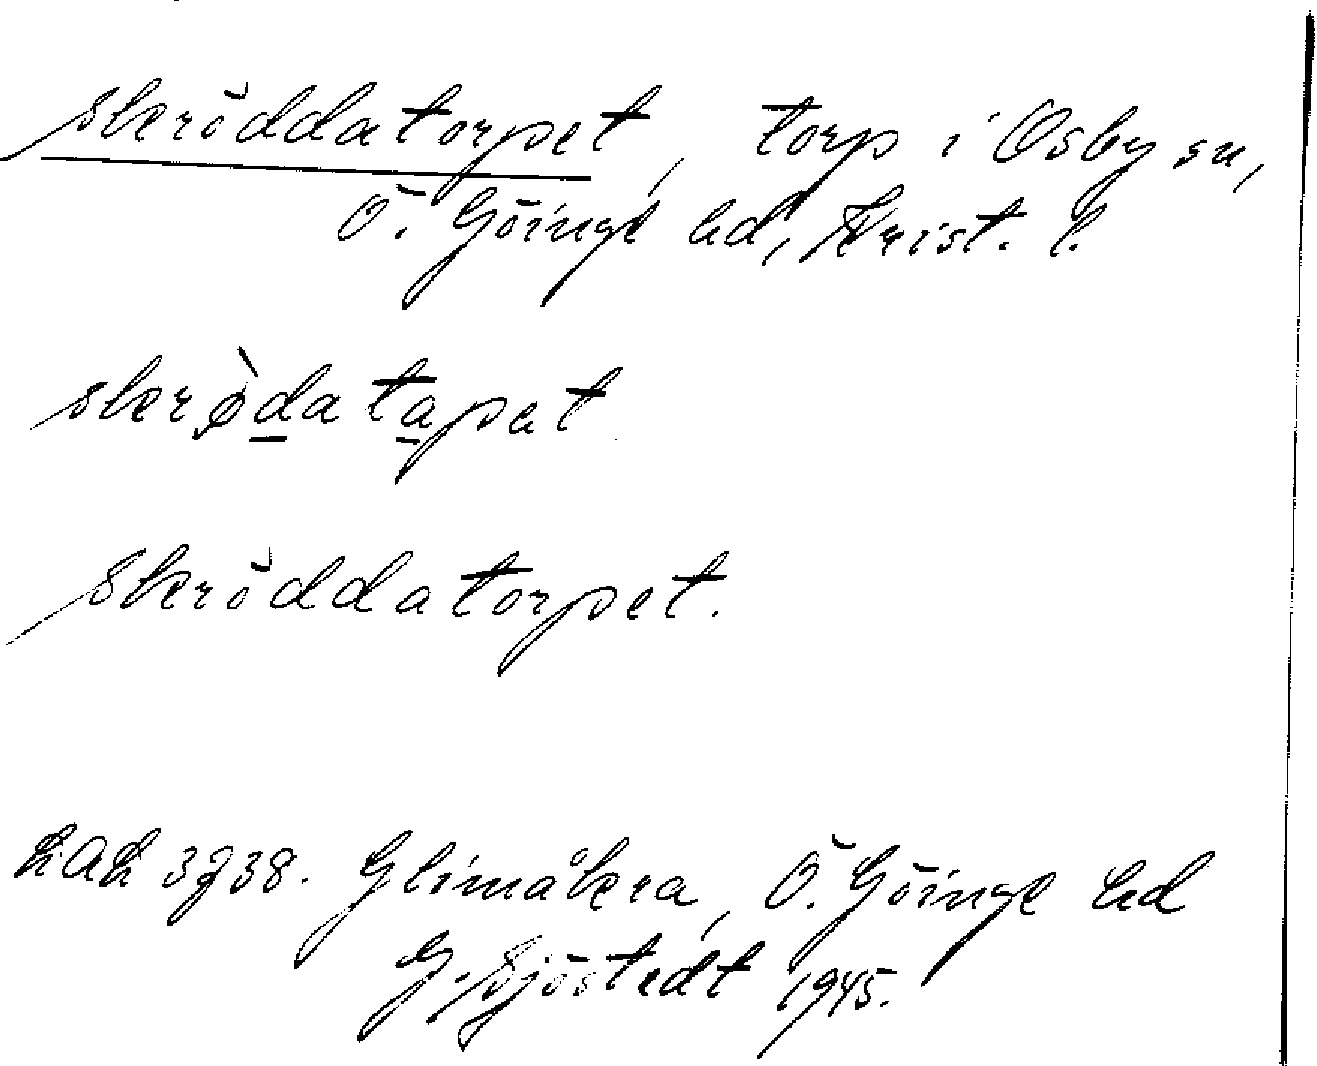 skröddatorpet, torp i Osby sn,
Ö. Göinge hd, Krist. l.
skrø̀datapat
Skröddatorpet.
LAL 3938. Glimåkra, Ö. Göinge hd
G. Sjöstedt 1945.